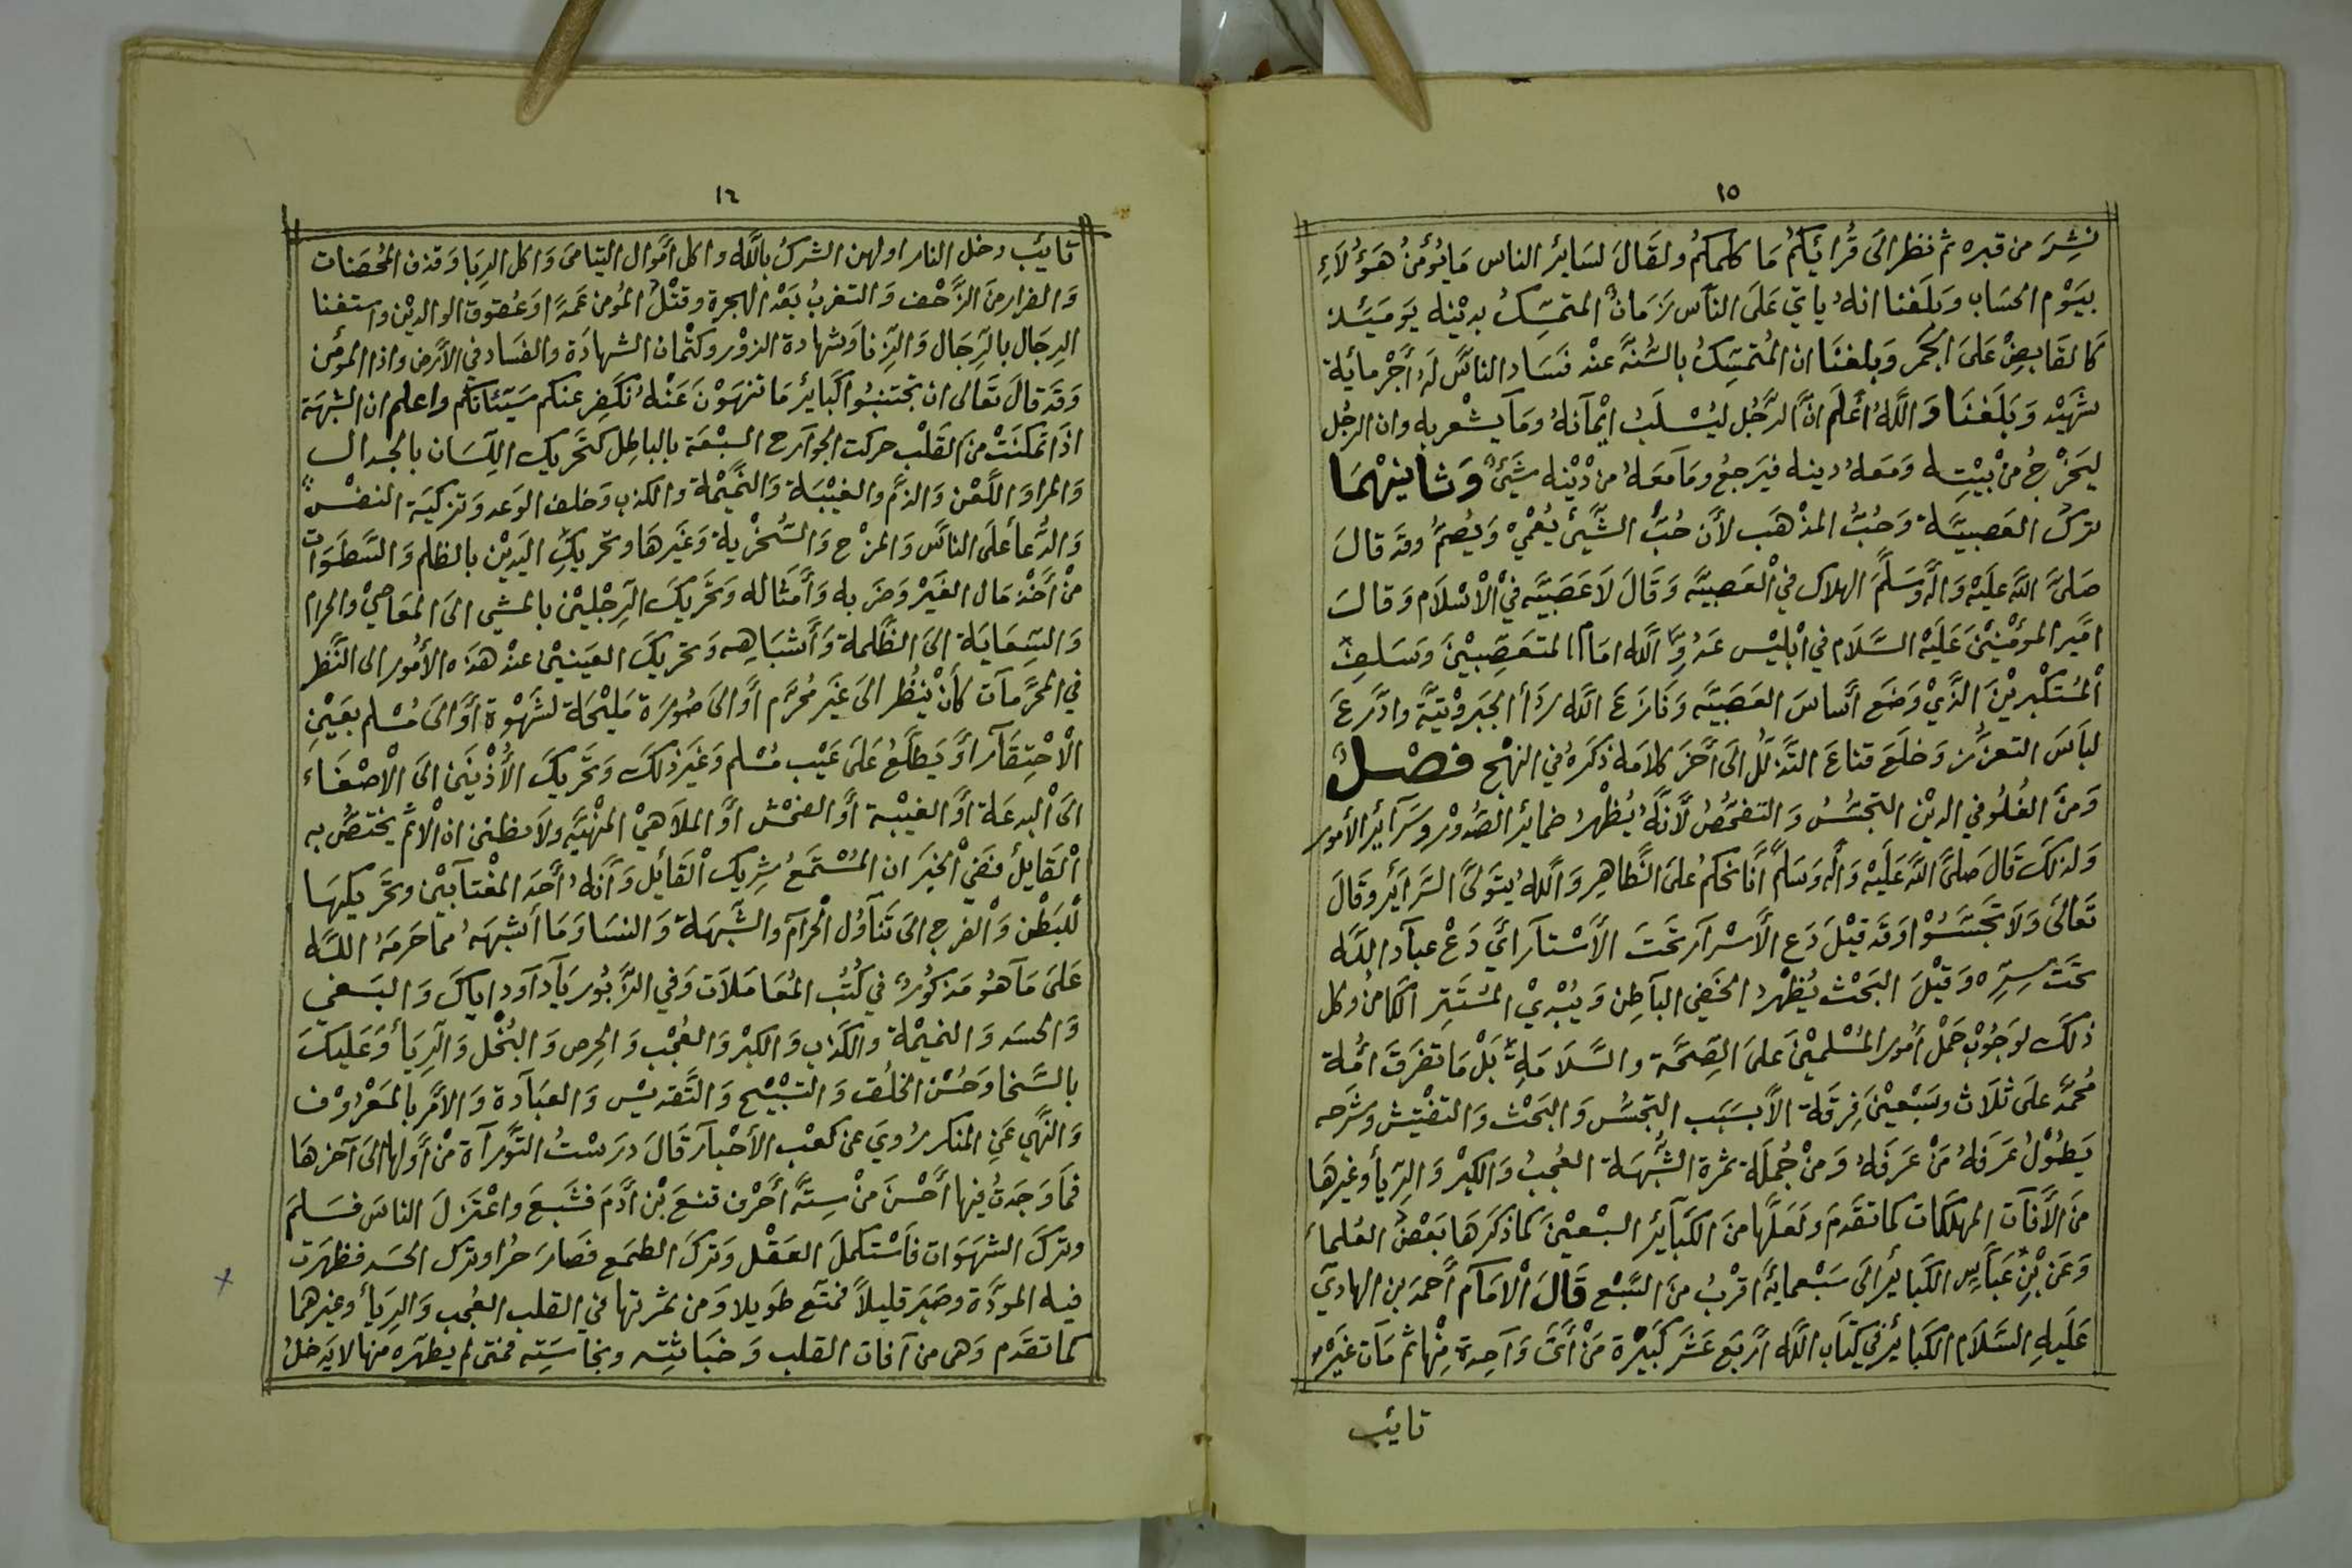 ١٥
نشر من قبره ثم نظر الى قُرائكم مَا كلمكمُ ولقَالَ لسَائِر الناس مَا يُؤمنُ هَؤُلَاءِ
بيَوْم الحسَاب وبلَغنا انهُ ياتي عَلَى النَاس زَمَانٌ المتمسِّكُ بديْنه يَومَئِذ
كَالقَابِضْ عَلىَ الجَمَر وَبلغنَا ان المُتمسِّكُ بالسُّنَّةً عنْد فسَاد الناسَّ لَهُ أجْر مائة
شهَيْد وَبَلَغنَا وَاللَّهُ أعْلَم انَّ الرَّجُل ليُسْلَبُ ايْمَانهُ وَمَا يشْعر به وان الرجُل
ليَخْرجُ منْ بيْتِه وَمَعهُ دينه فيَرجعُ ومَا مَعَهُ من دْيْنه شَيَئٌ وَثانيهُمَا
ترك العَصبيَّة وَحُبُّ المذْهَب لأنَ حُبَّ الشَّيئ يُعْمَيْ وَيُصمُّ وقد قالَ
صَلىَّ اللَّه عليَهْ وَآله وَسَلَّمَ الهلاك في العَصبيَّه وَقَالَ لَاعَصَبيَّه فيْ الْاسْلَام وَقالَ
اميَّر المؤمْنِيْنَ عَليَه السَّلَام في ابْليْس عَدُوِّ اللَّه امَام المتعَصِّبيْنَ وَسَلفِ
اْلمُستَكْبريْنَ الذَّيْ وَضَع أسَاسَ العَصَبيَّه وَنَازعَ اللَّه رَدأ الجبَروْتيَّة وادَّرعَ
لبَاسَ التعزُّز وَخلَعَ قناعَ التَّذلل الى آخَر كلامَه ذكَرهُ في النهْج فصْل
وَمنَ الغُلُو في الديْن التجَسُّسُ وَالتفحّصُ لأنَّهُ يُظهْرُ ضمائر الصُدوْر وسَرآئر الأمور
وَلذلكَ قَالَ صَلىَّ اللَّه عَلَيهْ وَآله وَسَلمَّ أنَا نحْكمُ علىَ الظَّاهِر وَاللَّهُ يتَولىَّ السَرائر وقَالَ
تَعَالىَ وَلَا تجَسَّسُوْا وَقد قيْلَ دَع الأسْرآر تَحتَ الأسْتآر ايَّ دَعْ عبآد اللَّه
تحَتَ سِترِّه وَقيْلَ البَحَثْ يُظهْرُ الخَفي البَاطِن وَيُبْديْ المسْتَتِر الكَامنُ وكل
ذلكَ لوَجُوْب حَملْ أمُور المُسْلميْنَ علىَ الصِّحَّة والسَّلَامَةِ بَلْ مَا تفَرقَ امُة
مُحمَّد علَى ثَلَاث وسَبْعيْنَ فِرقَة الاَّ بسَبَب التجسُّس وَالبَحَثْ وَالتفْتيش وشَرحه
يَطوُلُ عَرَفهُ مَنْ عَرَفهُ وَمنْ جُملَة ثمرة الشُّبهَة العُجبُ وَالكِبْر وَالرِّيأ وغيرهَا
منَ الآفآت المهلكَات كما تقَدمَ وَلعَلهَّا منَ الكَبآئر السبْعيْنَ كماذكرَهَا بَعْضُ العُلماءَ
وَعَن بْنِ عَبَّاسِ الكَبائر الَى سَبْعمايةً اقرْبُ منَ السَّبْع قَالَ الْامَام أحمَد بن الهاديَ
عَلَيهِ السَلَام الكَبائر في كتَاب اللَّه ارْبَع عَشَر كَبيَرْة مَنْ أتَى وَاحِدة مِنْهَا ثم مَات غيَرْ
تائب
١٦
تائب دخل النار اولهن الشركُ باللَّه واكل أموَال اليتامىَ وَاكل الرِبَا وَقذف المُحصَنات
وَالفرار منَ الزَّحْف وَالتغربُ بَعْد الهجرة وقتْلُ المُومن عَمدًا وَعُقوق الوالديْن واستغنا
الرِجَال بالرِجَال وَالزِنا وَشهادة الزوْر وكتْمان الشهادَة والفسَاد في الأرض واذا المؤمن
وَقَد قالَ تَعَالى ان تجتنبُوا كَبائر مَا تنهَوْنَ عَنْهُ نكَفِر عنكم سَيّئاتكم واعلم ان الشبهَة
اذا تمكنَتْ منَ القَلْب حركت الجوَارح السبْعَة بالباطِل كتَحَريك اللِسَان بالجدال
وَالمرا وَاللَّعْن وَالذم والغيْبَة وَالنمَّيْمة والكذب وَخلف الوَعد وَتزكيَة النفسْ
وَالدُّعأ علَى الناسَّ وَالمزْح وَالسُّخْريهْ وَغيَرهَا وتحَريكِ اليَديْن بالظلم وَالسَّطوَات
منْ أخذ مَال الغيَرْ وَضَربه وَأمثَاله وَتحَريكَ الرِجْليْن بالمشي الىَ المعَاصيْ والحرام
وَالسِّعَايَة الىَ الظَّلمة وَأشْبَاهِه وَتحَريكَ العَينيْن عنْد هَذه الأمُور الى النَّظر
في المحَرَّمآت كأنْ ينْظُر الىَ غيَر مُحرَّم أوْ الىَ صُورَة مَليْحَة لشَهْوة أوْ الىَ مُسْلم بعَيْنِ
الْاحْتِقَار أوْ يَطلَّعُ عَلىَ عَيْب مُسْلم وَغيَر ذلكَ وَتحَريكَ الأُذْنَيْن الىَ الْاصْغَاء
الىَ الْبدعَة أوْ الغيْبة أوْ الفحْش أوْ الملَاهيْ المنهْيَّه ولَا تظنن ان الْاثمَ يختصُّ به
اْلقَايلُ ففيْ الخبَر ان المُسْتمَعُ شِريكَ القَائل وَأنَّهُ أحَد المغتابَيْن وتحَريكهَا
لْلبَطْن وَاْلفرج الىَ تنَاوُل الحَرآم والشُّبهَة وَالنسَا وَمَا أشبهَهُ مما حَرمَهُ اللَّه
عَلىَ مَا هُو مَذكوُرٌ في كُتُب المُعَامَلَات وَفي الزَّبُور يَآدآود ايّاكَ وَالبَغيْ
وَالحسَد وَالنميْمة والكذب وَالكبْر وَالعُجْب وَالحِرص وَالبُخْل وَالرِيأ وَعَليكَ
بالسَّخا وَحُسْن الخلُق وَالتسْبيْح وَالتَّقديْس وَالعبَآدة وَالأمْر بالمَعْرُوْف
وَالنهَّي عَنِ المنكر رُوِيَ عن كعْب الأحْبَار قَالَ درَسْتُ التَّورآة منْ أوَّلها الىَ آخرهَا
فمَا وَجَدتُ فيها أحْسنَ منْ سِتَّة أحْرف قنعَ بْن آدَمَ فشَبعَ واعْتزلَ الناسَ فسَلمَ
وترَكَ الشهَوَات فاَسْتكملَ العَقْل وَترَكَ الطمَع فصَارَ حُرا وترك الحسَد فظهَرت
فيه المودَّة وصَبَر قليلاً فمتَع طوَيلا وَمن ثمرتها في القلب العُجب وَالرِيأ وغيرهما
كما تقدَم وَهى من آفات القلب وَخبَاثتِه ونجاسَتِه فمتى لم يطهّره منها لا يَدخلُ